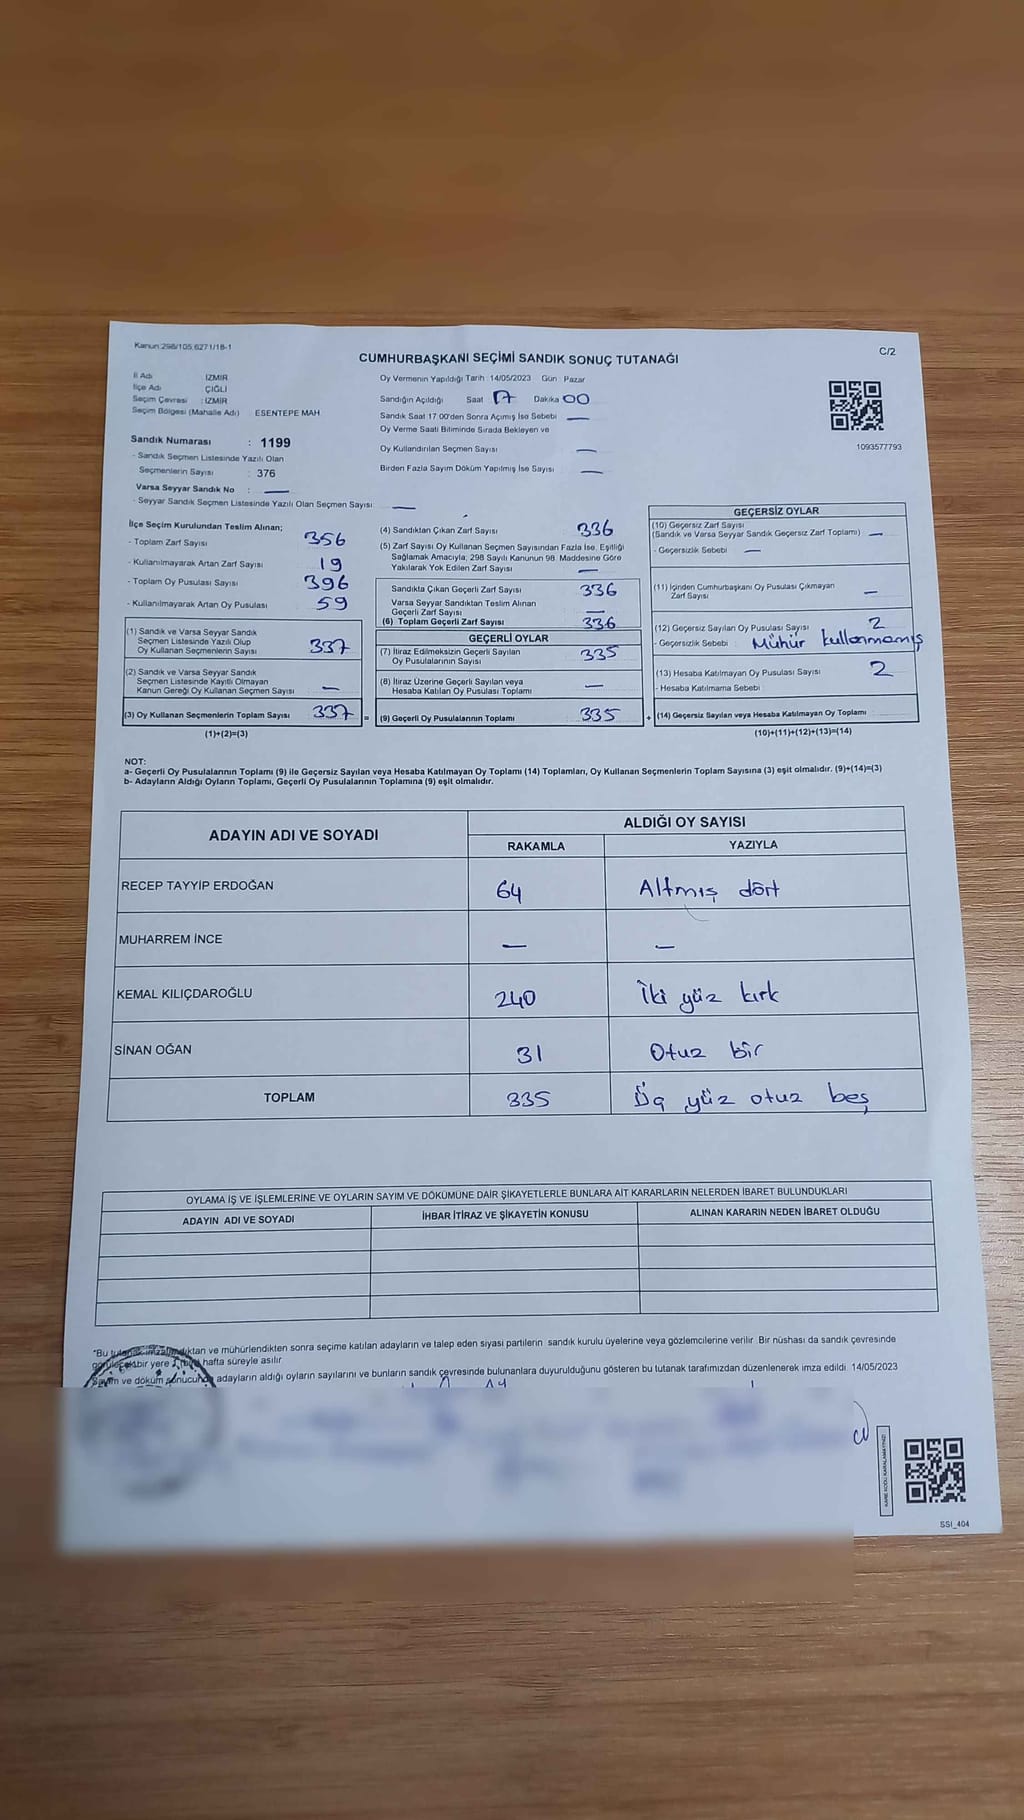 Kanun:298/105,6271/18-1
C/2
CUMHURBAŞKANI SEÇİMİ SANDIK SONUÇ TUTANAĞI
İl Adı : İZMİR
İlçe Adı : ÇİĞLİ
Seçim Çevresi : İZMİR
Seçim Bölgesi (Mahalle Adı) ESENTEPE MAH
Sandık Numarası : 1199
- Sandık Seçmen Listesinde Yazılı Olan
Seçmenlerin Sayısı : 376
Varsa Seyyar Sandık No : —
- Seyyar Sandık Seçmen Listesinde Yazılı Olan Seçmen Sayısı: —
Oy Vermenin Yapıldığı Tarih :14/05/2023 Gün : Pazar
Sandığın Açıldığı Saat 17 Dakika 00
Sandık Saat 17.00'den Sonra Açımış İse Sebebi —
Oy Verme Saati Bitiminde Sırada Bekleyen ve
Oy Kullandırılan Seçmen Sayısı —
Birden Fazla Sayım Döküm Yapılmış İse Sayısı —
1093577793
İlçe Seçim Kurulundan Teslim Alınan;
- Toplam Zarf Sayısı 356
- Kullanılmayarak Artan Zarf Sayısı 19
- Toplam Oy Pusulası Sayısı 396
- Kullanılmayarak Artan Oy Pusulası 59
(1) Sandık ve Varsa Seyyar Sandık
Seçmen Listesinde Yazılı Olup
Oy Kullanan Seçmenlerin Sayısı 337
(2) Sandık ve Varsa Seyyar Sandık
Seçmen Listesinde Kayıtlı Olmayan
Kanun Gereği Oy Kullanan Seçmen Sayısı —
(3) Oy Kullanan Seçmenlerin Toplam Sayısı 337 =
(1)+(2)=(3)
(4) Sandıktan Çıkan Zarf Sayısı 336
(5) Zarf Sayısı Oy Kullanan Seçmen Sayısından Fazla İse, Eşitliği
Sağlamak Amacıyla; 298 Sayılı Kanunun 98. Maddesine Göre
Yakılarak Yok Edilen Zarf Sayısı —
Sandıkta Çıkan Geçerli Zarf Sayısı 336
Varsa Seyyar Sandıktan Teslim Alınan
Geçerli Zarf Sayısı —
(6) Toplam Geçerli Zarf Sayısı 336
GEÇERLİ OYLAR
(7) İtiraz Edilmeksizin Geçerli Sayılan
Oy Pusulalarının Sayısı 335
(8) İtiraz Üzerine Geçerli Sayılan veya
Hesaba Katılan Oy Pusulası Toplamı —
(9) Geçerli Oy Pusulalarının Toplamı 335 +
GEÇERSİZ OYLAR
(10) Geçersiz Zarf Sayısı
(Sandık ve Varsa Seyyar Sandık Geçersiz Zarf Toplamı) —
- Geçersizlik Sebebi —
(11) İçinden Cumhurbaşkanı Oy Pusulası Çıkmayan
Zarf Sayısı —
(12) Geçersiz Sayılan Oy Pusulası Sayısı 2
- Geçersizlik Sebebi : Mühür kullanmamış
(13) Hesaba Katılmayan Oy Pusulası Sayısı 2
- Hesaba Katılmama Sebebi
(14) Geçersiz Sayılan veya Hesaba Katılmayan Oy Toplamı
(10)+(11)+(12)+(13)=(14)
NOT:
a- Geçerli Oy Pusulalarının Toplamı (9) ile Geçersiz Sayılan veya Hesaba Katılmayan Oy Toplamı (14) Toplamları, Oy Kullanan Seçmenlerin Toplam Sayısına (3) eşit olmalıdır. (9)+(14)=(3)
b- Adayların Aldığı Oyların Toplamı, Geçerli Oy Pusulalarının Toplamına (9) eşit olmalıdır.
ADAYIN ADI VE SOYADI
ALDIĞI OY SAYISI
RAKAMLA YAZIYLA
RECEP TAYYİP ERDOĞAN 64 Altmış dört
MUHARREM İNCE — —
KEMAL KILIÇDAROĞLU 240 İki yüz kırk
SİNAN OĞAN 31 Otuz bir
TOPLAM 335 Üç yüz otuz beş
OYLAMA İŞ VE İŞLEMLERİNE VE OYLARIN SAYIM VE DÖKÜMÜNE DAİR ŞİKAYETLERLE BUNLARA AİT KARARLARIN NELERDEN İBARET BULUNDUKLARI
ADAYIN ADI VE SOYADI İHBAR İTİRAZ VE ŞİKAYETİN KONUSU ALINAN KARARIN NEDEN İBARET OLDUĞU
"Bu tutanak imzalandıktan ve mühürlendikten sonra seçime katılan adayların ve talep eden siyasi partilerin sandık kurulu üyelerine veya gözlemcilerine verilir. Bir nüshası da sandık çevresinde
görülecek bir yere 1 (bir) hafta süreyle asılır
Sayım ve döküm sonucunda adayların aldığı oyların sayılarını ve bunların sandık çevresinde bulunanlara duyurulduğunu gösteren bu tutanak tarafımızdan düzenlenerek imza edildi. 14/05/2023
KARE KODU KARALAMAYINIZ!
SSI_404